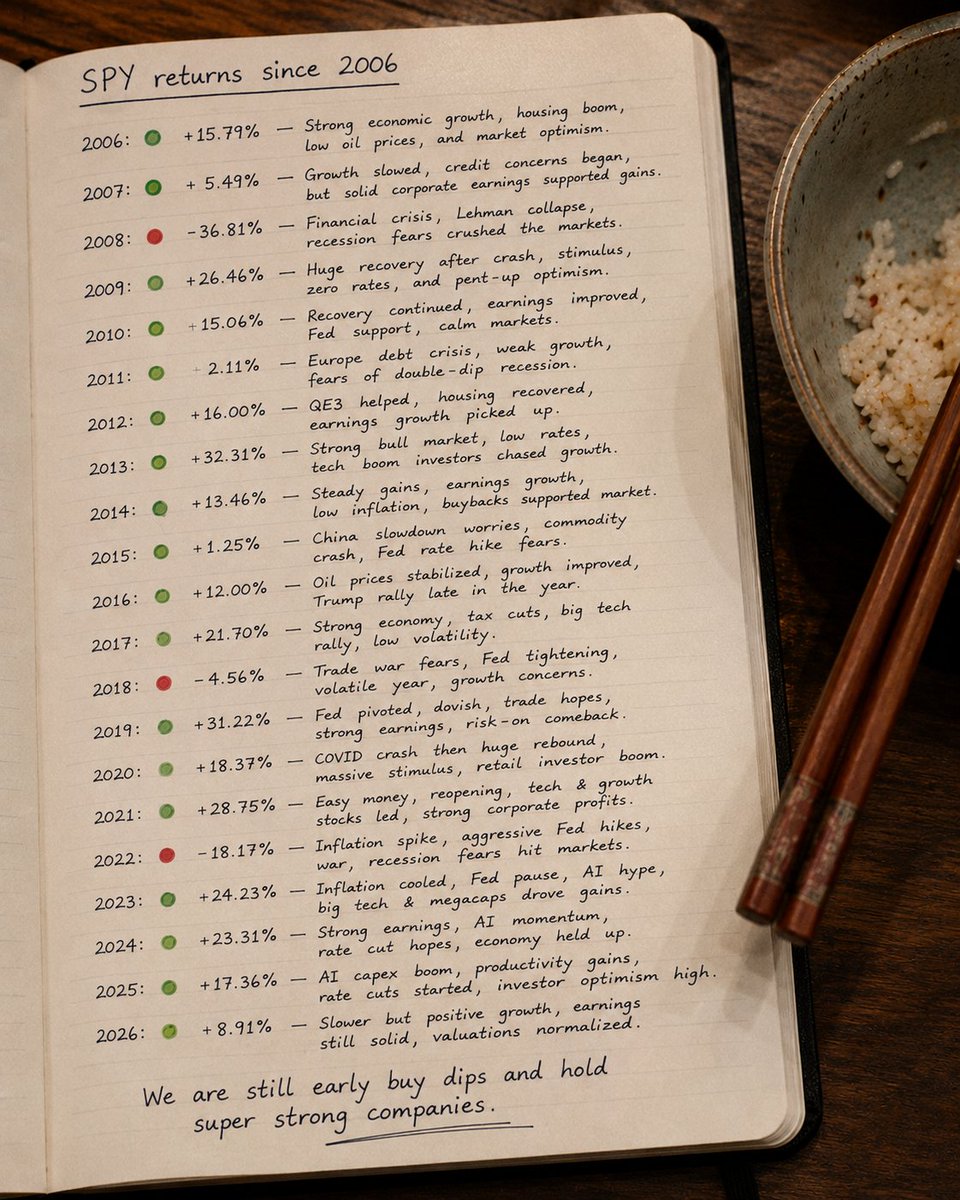 SPY returns since 2006
2006: +15.79% — Strong economic growth, housing boom,
low oil prices, and market optimism.
2007: + 5.49% — Growth slowed, credit concerns began,
but solid corporate earnings supported gains.
2008: -36.81% — Financial crisis, Lehman collapse,
recession fears crushed the markets.
2009: +26.46% — Huge recovery after crash, stimulus,
zero rates, and pent-up optimism.
2010: +15.06% — Recovery continued, earnings improved,
Fed support, calm markets.
2011: 2.11% — Europe debt crisis, weak growth,
fears of double-dip recession.
2012: +16.00% — QE3 helped, housing recovered,
earnings growth picked up.
2013: +32.31% — Strong bull market, low rates,
tech boom investors chased growth.
2014: +13.46% — Steady gains, earnings growth,
low inflation, buybacks supported market.
2015: +1.25% — China slowdown worries, commodity
crash, Fed rate hike fears.
2016: +12.00% — Oil prices stabilized, growth improved,
Trump rally late in the year.
2017: +21.70% — Strong economy, tax cuts, big tech
rally, low volatility.
2018: -4.56% — Trade war fears, Fed tightening,
volatile year, growth concerns.
2019: +31.22% — Fed pivoted, dovish, trade hopes,
strong earnings, risk-on comeback.
2020: +18.37% — COVID crash then huge rebound,
massive stimulus, retail investor boom.
2021: +28.75% — Easy money, reopening, tech & growth
stocks led, strong corporate profits.
2022: -18.17% — Inflation spike, aggressive Fed hikes,
war, recession fears hit markets.
2023: +24.23% — Inflation cooled, Fed pause, AI hype,
big tech & megacaps drove gains.
2024: +23.31% — Strong earnings, AI momentum,
rate cut hopes, economy held up.
2025: +17.36% — AI capex boom, productivity gains,
rate cuts started, investor optimism high.
2026: +8.91% — Slower but positive growth, earnings
still solid, valuations normalized.
We are still early buy dips and hold
super strong companies.